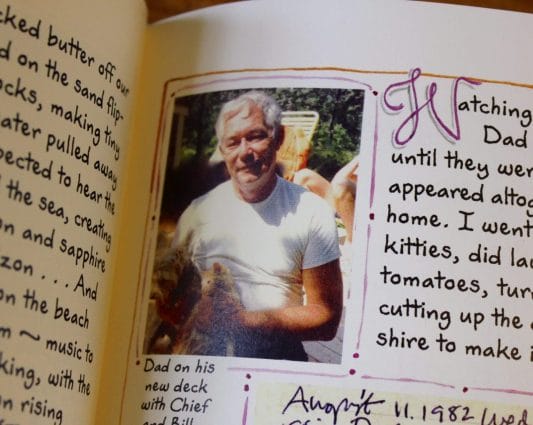 cked butter off our
d on the sand flip-
ocks, making tiny
ater pulled away
pected to hear the
the sea, creating
on and sapphire
zon . . . And
on the beach
m ~ music to
king, with the
n rising
Dad on his
new deck
with Chief
and Bill
Watching
Dad
until they were
appeared altog
home. I went
kitties, did lau
tomatoes, turn
cutting up the
shire to make i
August 11. 1982 Wed